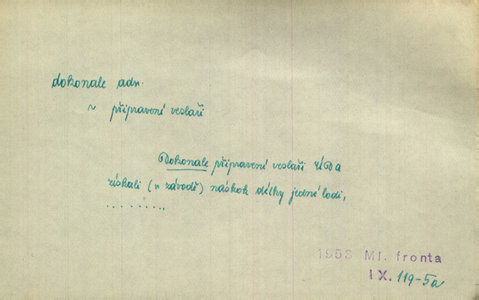 dokonale adv.
~ připravení veslaři
Dokonale připravení veslaři ÚDA
získali (v závodě) náskok délky jedné lodi,
. . . . . . . . .
1953 Ml. fronta
IX. 119-5a